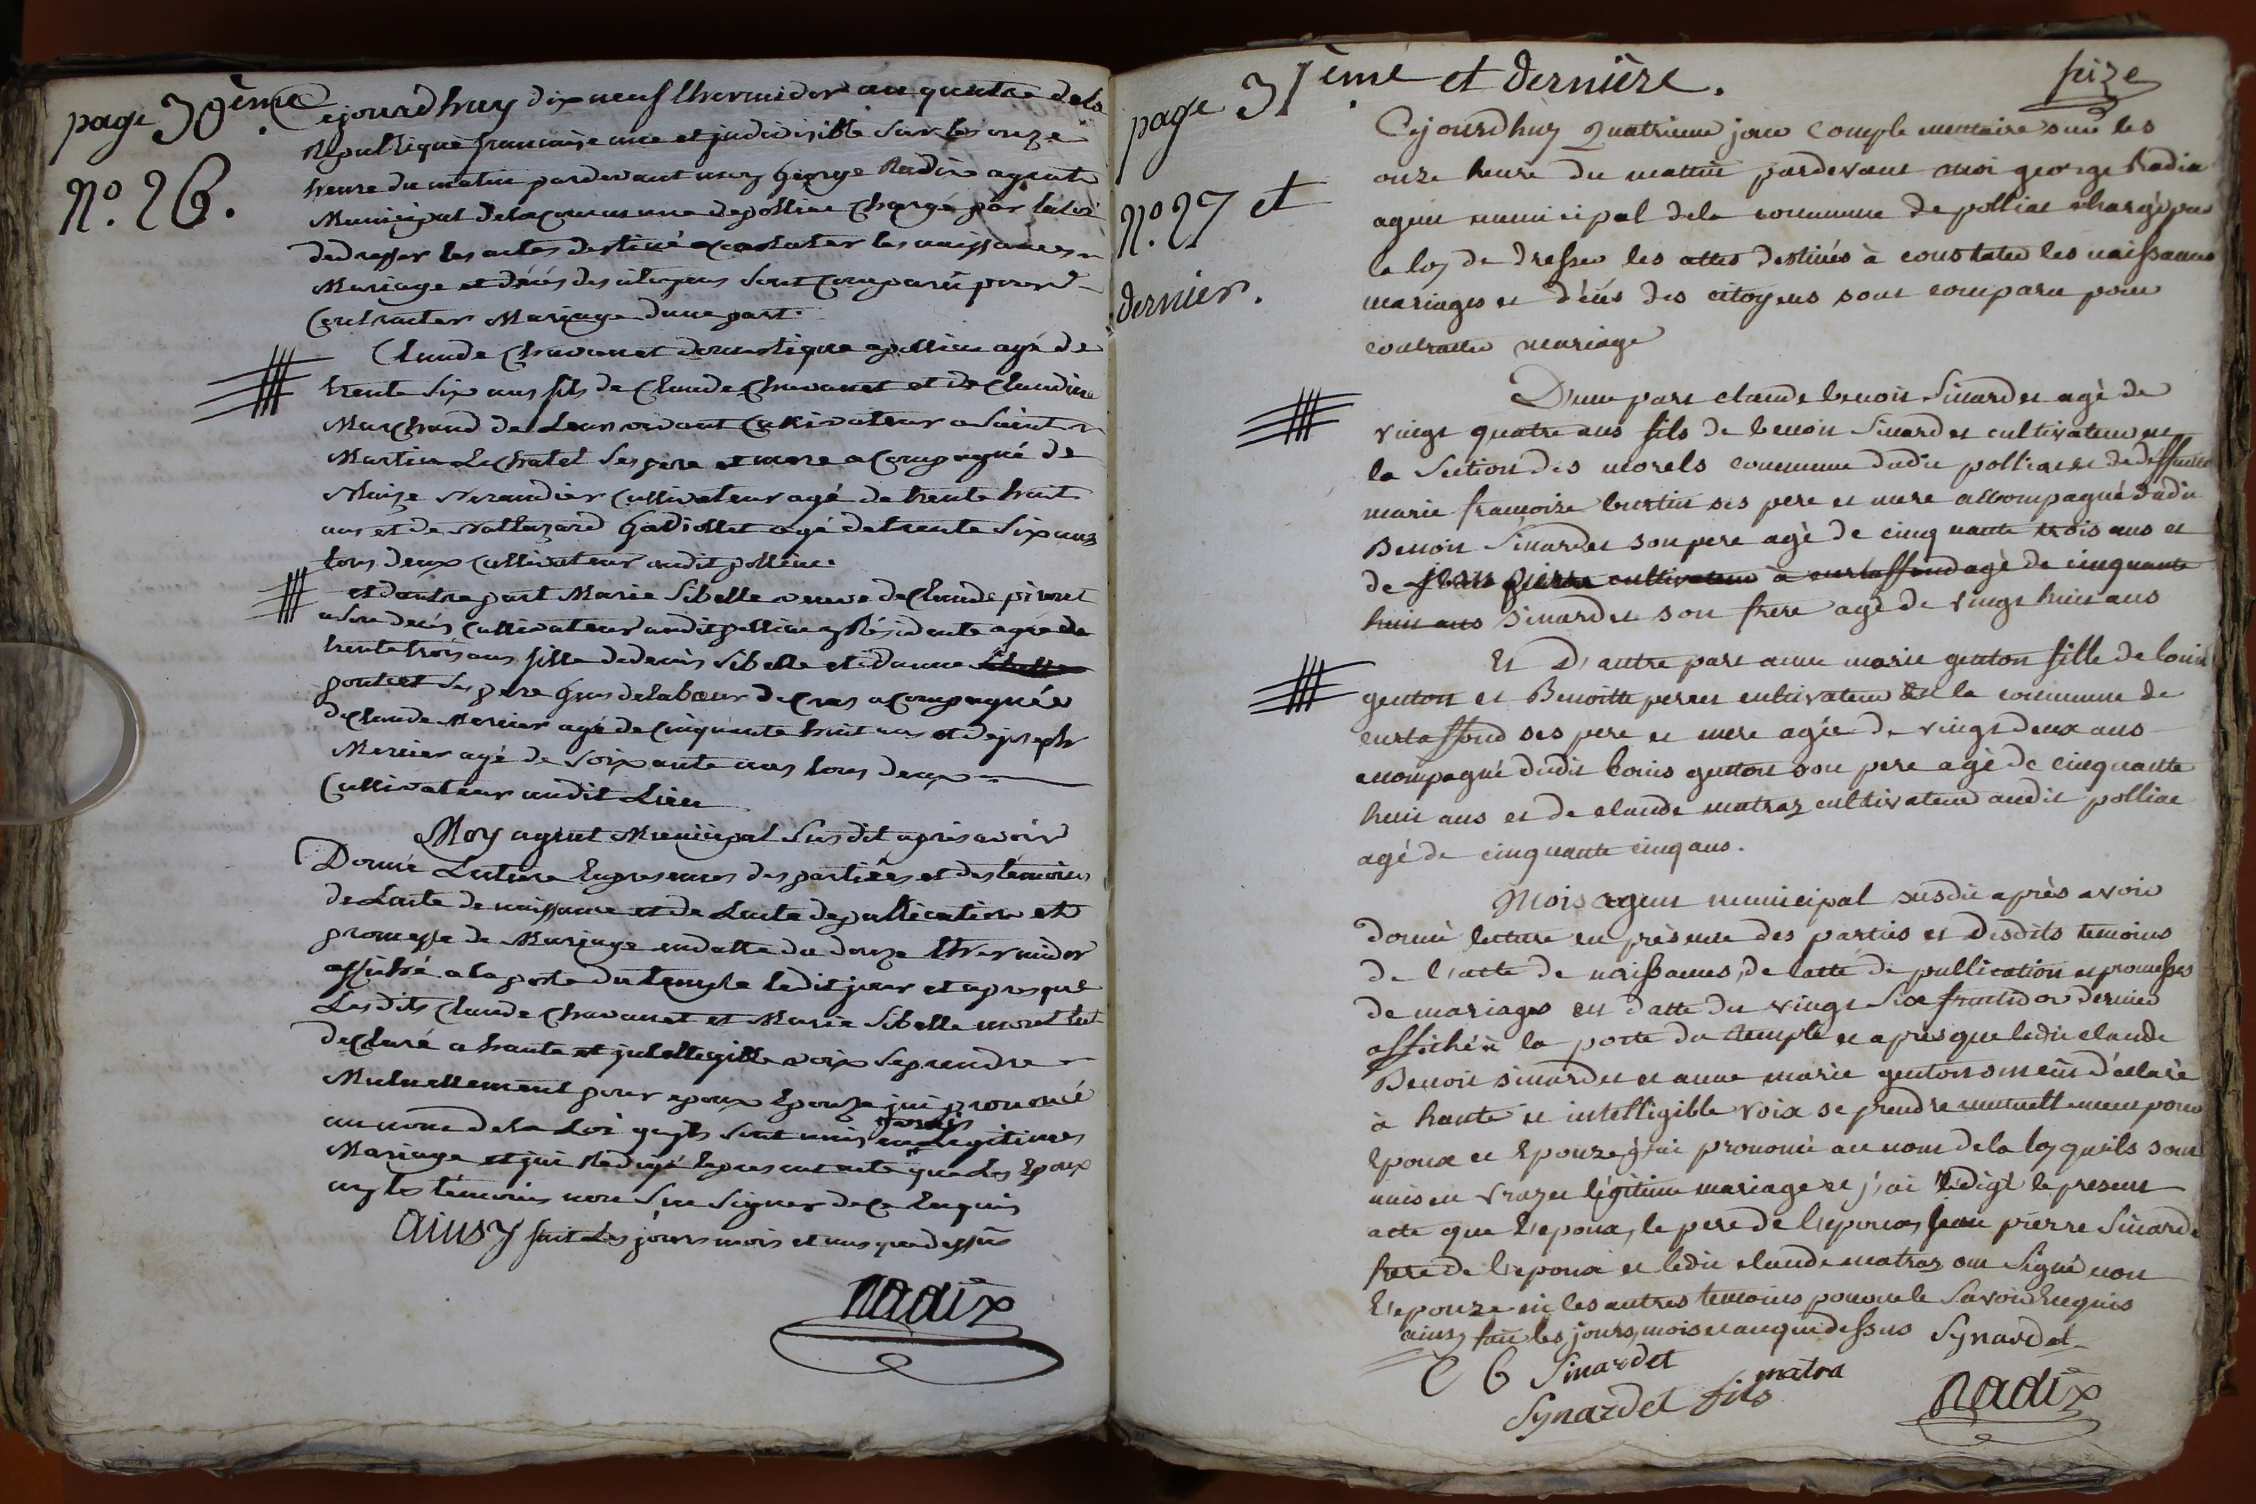 page 30ème
N.o 26.
Cejourdhuy dix neuf thermidor an quatre dela
Republique francaise une et jndivisible sur les onze
heure du matin pardevant moy George Radix agent
Municipal delacommune depolliac chargé par laloi
dedresser les actes destiné aconstater les naissances
Mariage et décés des citoyens sont comparû pour
Contracter Mariage dune part.
Claude Chavanet domestique apolliac agé de
trente six ans fils de Claude Chavanet et de Claudine
Marchand de Leur vivant Cultivateur a Saint
Martin Lechatel ses pere et mere acompagné de
cultivateur agé de trente huit
ans et de Baltazard Gadiollet agé detrente Six ans
tous deux Cultivateur audit polliac.
et dautre part Marie Sibelle veuve deClaude pivret
a son decés Cultivateur audit polliac y Résidente agée de
trente trois ans fille dedenis Sibelle et Danne
ses pere Gens delabeur de Cras acompagnée
deClaude Mercier agé de Cinquante huit ans et dejoseph
Mercier agé de soixante ans tous deux
Cultivateur audit Lieu
Moy agent Municipal Susdit apres avoir
Donné Lecture Enpresences des partiés et des témoins
de Lacte de naissance et de Lacte depublication et
promesse de Mariage endatte du douze thermidor
affiché a la porte du temple ledit jour et apresque
Lesdits Claude Chavanet et Marie Sibelle mont
declaré a haute et jntellegible voix seprendre
Mutuellement pour epoux Epouze jai prononcé
au nom dela Loi quyls sont unis en Legitimes
Mariage et jai Redigé lepresent acte que Les Epoux
ny les témoins non Sçu signer dece Enquis
Ainsy fait Les jours mois et ans quedessus
Radix
page 31ème et dernière.
seize
N.o 27 et
dernier.
Cejourdhuy Quatrieme jour complementaire sur les
onze heure du mattin pardevant moi george Radix
agent municipal dela commune de polliac chargé par
la loy de dresser les attes destinés à constater les naissances
mariages et décés des citoyens sont comparu pour
contratter mariage
D'une part claude benoit Sinardet agè de
vingt quatre ans fils de benoit Sinardet cultivateur en
la Section des morels commune dudit polliac et de deffunte
marie francoise burtin ses pere et mere accompagné dudit
Benoit Sinardet son pere agè de cinquante trois ans et
de jean pierre cultivateur à curtaffond agè de cinquante
huit ans Sinardet son frere agè de vingt huit ans
Et D'autre part anne marie genton fille de louis
genton et Benoitte perret cultivateur en la commune de
curtaffond ses pere et mere agée de vingt deux ans
acompagné dudit louis genton son pere agè de cinquante
huit ans et de claude matraz cultivateur audit polliac
agé de cinquante cinq ans.
Moi agent municipal susdit après avoir
donné lecture en prèsence des partiés et desdits temoins
de l'atte de naissances, de latte de publication et promesses
de mariages en datte du vingt Six fructidor dernier
affiché à la porte du temple et apres que ledit claude
Benoit sinardet et anne marie genton mont déclaré
à haute et intelligible voix se prendre mutuellement pour
Epoux et Epouze, j'ai prononcé au nom de la loy quils sont
unis en vrayes légitime mariage et j'ai Redigé le present
acte que L'epoux, le pere de l'epoux, jean pierre Sinardet
frere de l'epoux et ledit claude matraz ont signé non
L'epouze ni les autres temoins pour ne le savoir Enquis
ainsy fait les jours, mois et an que dessus Synardet
C B Sinardet
matra
Synardet fils
Radix